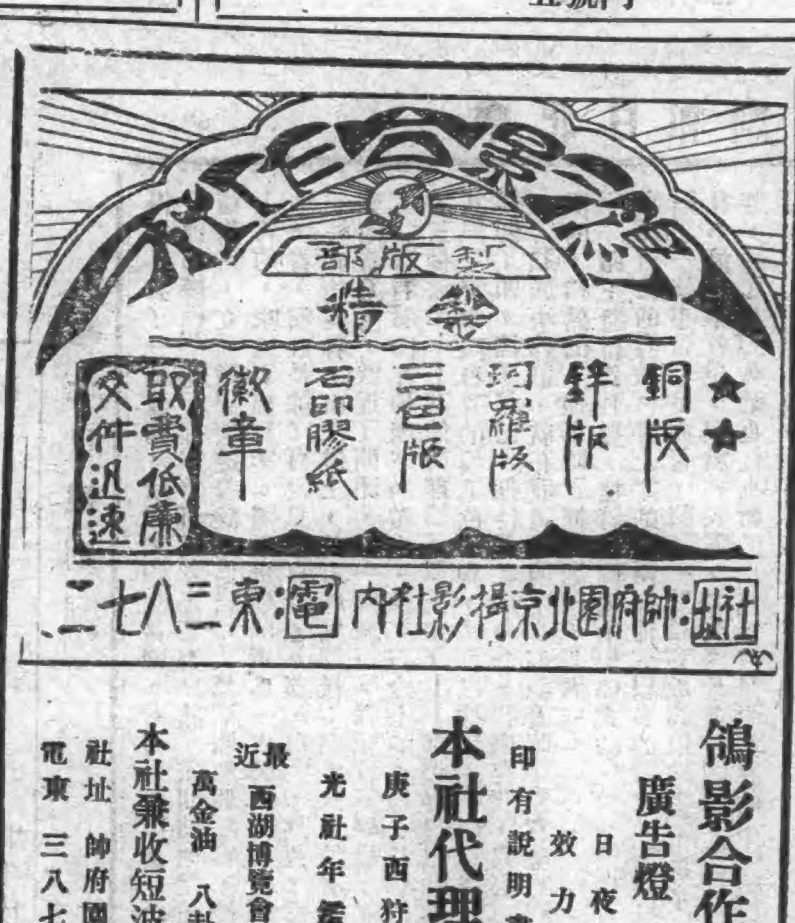 鴿影合作社
製版部
精製
銅版
鋅版
珂羅版
三色版
石印膠紙
徽章
取費低廉
交件迅速
社址:帥府園北京攝影社内 電:東三八七二
鴿影合作
廣告燈
日夜
效力
印有說明
本社代理
庚子西狩
光社年鑑
最近 西湖博覽會
萬金油 八卦
本社兼收短波
社址 帥府園
電東 三八七